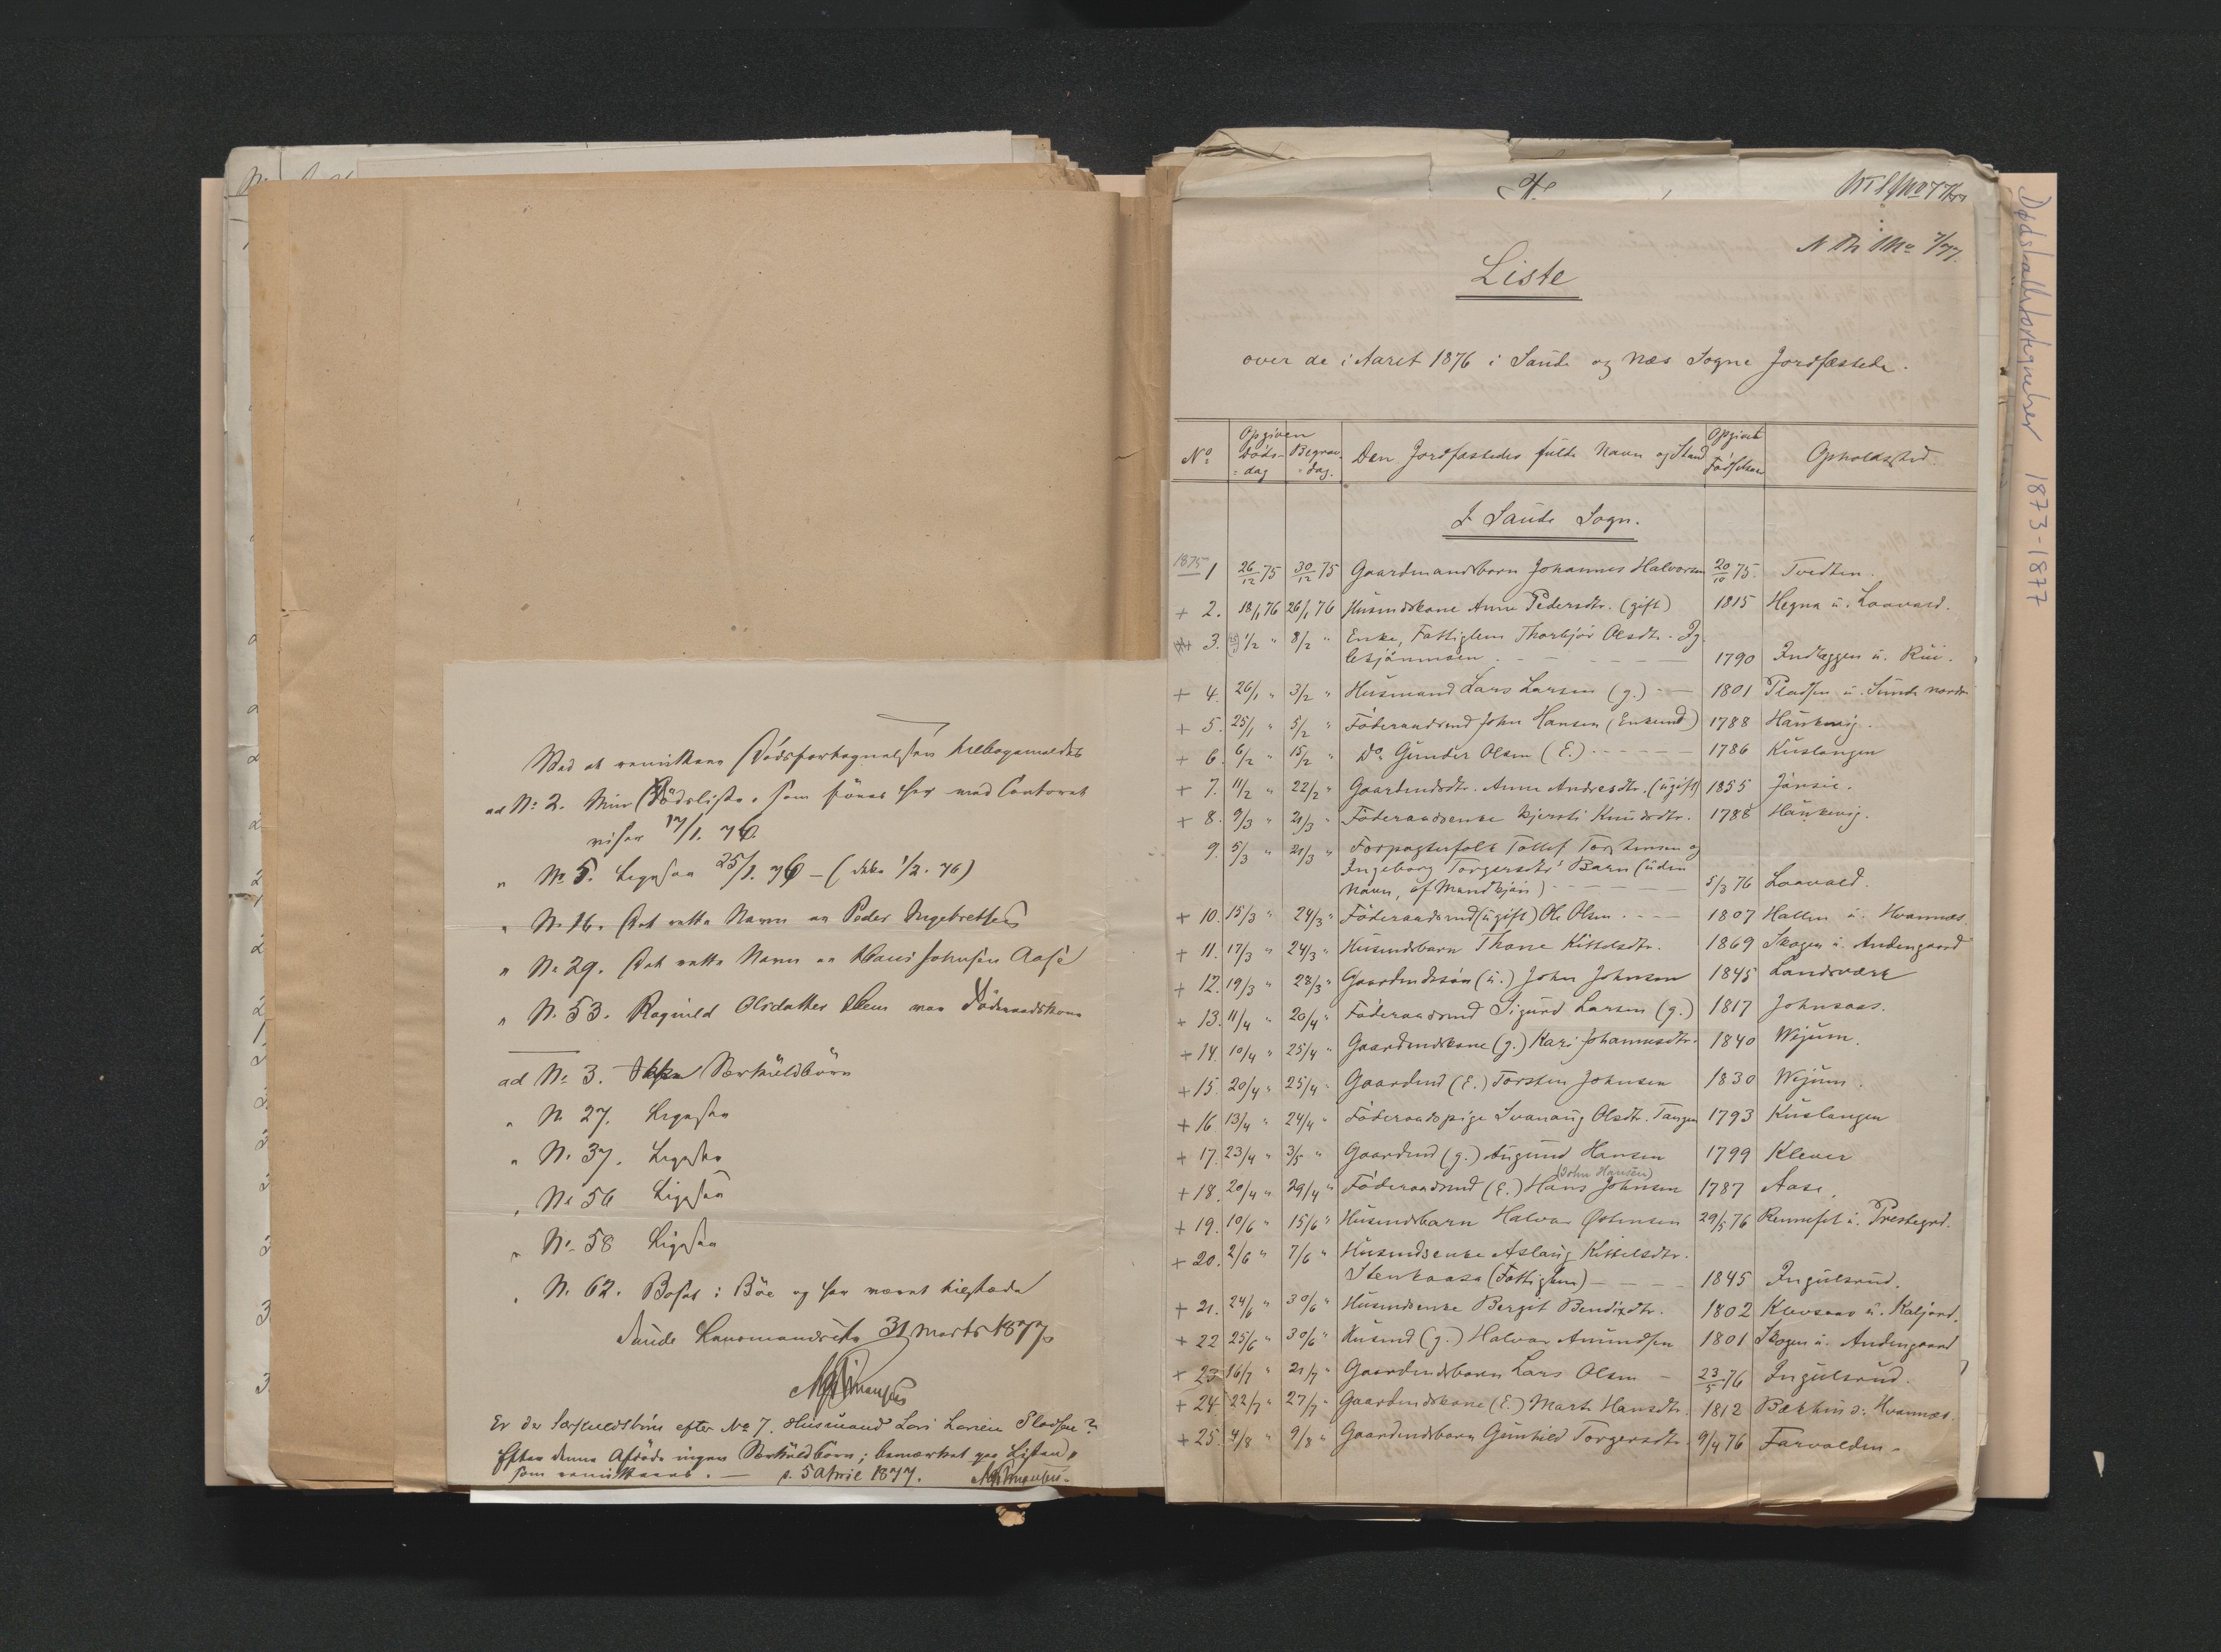 Ved at remittere Dødsfortegnelsen tilbagemeldes
ad No 2. Min Dødsliste, som føres her ved Contoret
viser 17/1. 76.
" No 5. Ligesaa 25/1. 76 – (ikke 1/2. 76)
" No 16. Det rette Navn er Peder Ingebretsen
" No 29. Det rette Navn er Hans Johnsen Aase
" No 53. Ragnild Olsdatter Klem var Føderaadskone
ad No 3. Ikke Særkuldbørn
" No 27. Ligesaa
" No 37. Ligesaa
" No 56 Ligesaa
" No 58 Ligesaa
" No 62. Bosat i Böe og her været tilstede
Saude Lensmandsctr 31 Marts 1877
Er der Særkuldsbörn efter No 7. Husmand Lars Larsen Pladsen?
Efter denne Afdöde ingen Særkuldbörn; bemærket paa Listen,
som remitteres. — s. 5 April 1877.
Dødsfallsfortegnelser 1873-1877
7/77.
Liste
over de i Aaret 1876 i Saude og Næs Sogne Jordfæstede.
No Opgiven Døds-dag Begrav.-dag. Den Jordfæstedes fulde Navn og Stand Opgivet Fødselsaar Opholdssted.
I Saude Sogn.
1875 1 26/12 75 30/12 75 Gaardmandsbarn Johannes Halvorsen 20/10 75. Tvedten.
+ 2. 18/1 76 26/1 76 Husmdskone Anne Pedersdtr. (gift) 1815 Hegna u. Laavald.
+ 3. 1/2 " 8/2 " Enke, Fattiglem Thorbjör Olsdtr. Ig-
letjönnmoen. 1790 Indlæggen u. Rui.
+ 4. 26/1 " 3/2 " Husmand Lars Larsen (g.) 1801 Pladsen u. Sunde nordre
+ 5. 25/1 " 5/2 " Föderaadsmd John Hansen (Enkemd) 1788 Haukevig.
+ 6. 6/2 " 15/2 " Do Gunder Olsen (E.) 1786 Kuslangen
+ 7. 11/2 " 22/2 " Gaardmdsdtr. Anne Andresdtr. (ugift) 1855 Jönsie.
+ 8. 9/3 " 21/3 " Föderaadsenke Kjersti Knudsdtr. 1788 Haukevig.
9. 5/3 " 21/3 " Forpagterfolk Tollef Torstensen og
Ingeborg Torgersdtrs Barn (uden
Navn, af Mandkjön) 5/3 76 Laavald.
+ 10. 15/3 " 24/3 " Föderaadsmd (ugift) Ole Olsen 1807 Hallen u. Hvannæs
+ 11. 17/3 " 24/3 " Husmdsbarn Thone Kittelsdtr. 1869 Skogen u. Andengaard
+ 12. 19/3 " 28/3 " Gaardmdssön (u.) John Johnsen 1845 Landsværk
+ 13. 11/4 " 20/4 " Föderaadsmd Sigurd Larsen (g.) 1817 Johnsaas.
+ 14. 10/4 " 25/4 " Gaardmdskone (g.) Kari Johannesdtr. 1840 Wejum.
+ 15. 20/4 " 25/4 " Gaardmd (E.) Torsten Johnsen 1830 Wejum.
+ 16. 13/4 " 24/4 " Föderaadspige Svanaug Olsdtr. Tangen 1793 Kuslangen
+ 17. 23/4 " 3/5 " Gaardmd (g.) Augund Hansen 1799 Klever
(John Hansen)
+ 18. 20/4 " 29/4 " Föderaadsmd (E.) Hans Johnsen 1787 Aase.
+ 19. 10/6 " 15/6 " Husmdsbarn Halvor Östensen 29/5 76 Rennefet u. Prestegrd.
+ 20. 2/6 " 7/6 " Husmdsenke Aslaug Kittelsdtr.
Stenkaasa (Fattiglem) 1845 Ingulsrud.
+ 21. 24/6 " 30/6 " Husmdsenke Berget Bendixdtr. 1802 Klevaas u. Kaljord.
+ 22 25/6 " 30/6 " Husmd (g.) Halvor Amundsen 1801 Skogen u. Andengaard
+ 23 16/7 " 21/7 " Gaardmdsbarn Lars Olsen 23/5 76 Ingulsrud.
+ 24. 22/7 " 27/7 " Gaardmdskone (E.) Marte Hansdtr. 1812 Bækhus u. Hvannæs.
+ 25. 4/8 " 9/8 " Gaardmdsbarn Gunhild Torgersdtr. 9/4 76 Farvolden.